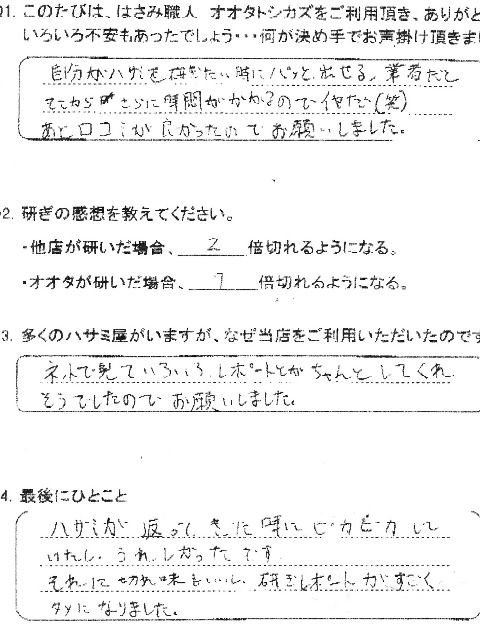 Q1. このたびは、はさみ職人 オオタトシカズをご利用頂き、ありがと
いろいろ不安もあったでしょう・・・何が決め手でお声掛け頂きま
自分がハサミを研ぎたい時にパッと出せる。業者だと
そこからさらに時間がかかるのでイヤだ(笑)
あと口コミが良かったのでお願いしました。
2. 研ぎの感想を教えてください。
・他店が研いだ場合、 2 倍切れるようになる。
・オオタが研いだ場合、 7 倍切れるようになる。
3. 多くのハサミ屋がいますが、なぜ当店をご利用いただいたのです
ネットで見ていろいろレポートとかちゃんとしてくれ
そうでしたのでお願いしました。
4. 最後にひとこと
ハサミが返ってきた時にピカピカして
いたし、うれしかったです。
それに切れ味もいいし、研ぎレポートがすごく
タメになりました。